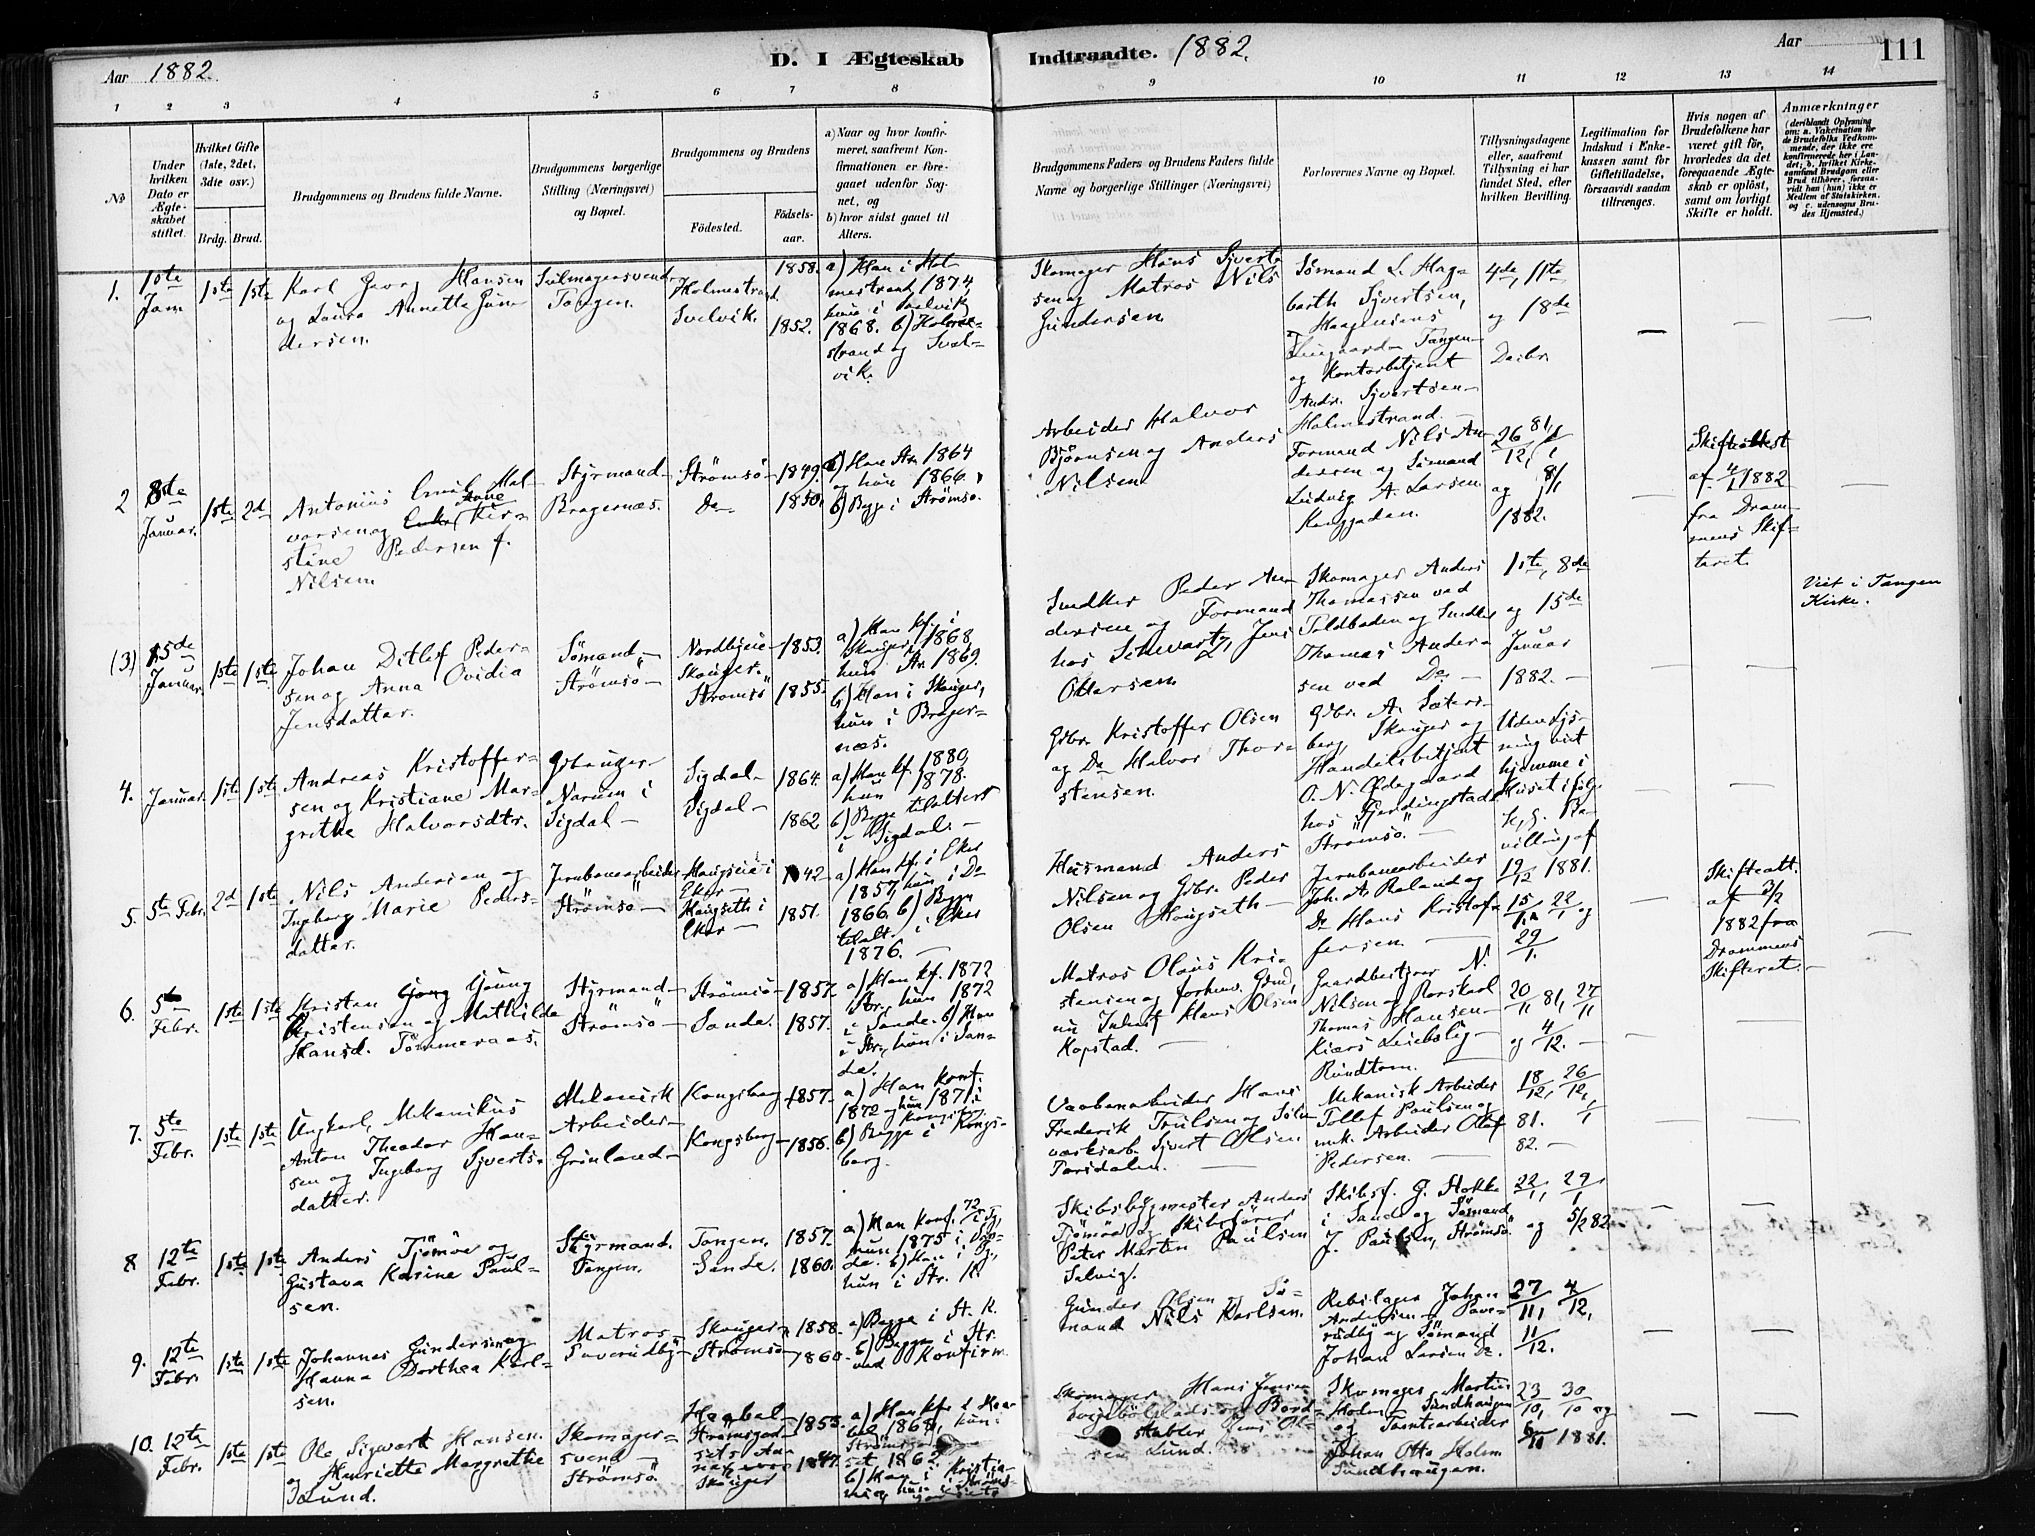 Aar 1882.
D. I Ægteskab
Indtraadte. 1882.
Aar
111
1 2 3 4 5 6 7 8 9 10 11 12 13 14
No
Under hvilken Dato er Ægteskabet stiftet.
Hvilket Gifte (1ste, 2det, 3die osv.)
Brdg. Brud.
Brudgommens og Brudens fulde Navne.
Brudgommens borgerlige Stilling (Næringsvei) og Bopæl.
Brudgommens og Brudens
Fødested.
Fødselsaar.
a) Naar og hvor konfirmeret, saafremt Konfirmationen er foregaaet udenfor Sognet, og
b) hvor sidst gaaet til Alters.
Brudgommens Faders og Brudens Faders fulde Navne og borgerlige Stillinger (Næringsvei)
Forlovernes Navne og Bopæl.
Tillysningsdagene eller, saafremt Tillysning ei har fundet Sted, efter hvilken Bevilling.
Legitimation for Indskud i Enkekassen samt for Giftetilladelse, forsaavidt saadan tiltrænges.
Hvis nogen af Brudefolkene har været gift før, hvorledes da det foregaaende Ægteskab er opløst, samt om lovligt Skifte er holdt.
Anmærkninger
(deriblandt Oplysning om: a. Vakcination for de Brudefolks Vedkommende, der ikke ere konfirmerede her i Landet; b. hvilket Kirkesamfund Brudgom eller Brud tilhører, forsaavidt han (hun) ikke er Medlem af Statskirken. og c. udensogns Brudes Hjemsted.)
1. 1ste Jan 1ste 1ste
Karl Georg Hansen
og Laura Annette Gundersen.
Svelmagersvend
Tangen.
Holmestrand 1858.
Svelvik. 1852.
a) Han i Holmestrand 1874,
hun i Svelvik
1868. b) Holmestrand og Svelvik.
Skomager Hans Sjvertsen og Matros Nils
Gundersen
Sømand L. Hagbarth Sjvertsen,
Tangen
og Kontorbetjent
Andr. Sjvertsen
Holmestrand.
4de, 11te
og 18de
Decbr.
2 8de Januar. 1ste 2d
Antonius Emil Halvorsen og Enke Anne Kirstine Pedersen f.
Nilsen
Styrmand
Bragernæs.
Strömsö 1849.
Do 1850.
a) Han Str. 1864
og hun 1866.
b) Begge i Strømsø.
Arbeider Halvor
Bjørnsen og Anders
Nilsen
Formand Nils Andersen og Sømand
Ludvig A. Larsen
26/12 81, 1/1
og 8/1
1882.
Skifteattest
af 4/1 1882
fra Drammens Skifteret.
(3) 15de Januar. 1ste 1ste
Johan Ditlef Pedersen og Anna Ovidia
Jensdatter.
Sömand
Strömsö
Skouger. 1853.
Strömsö 1855.
a) Han kf. i
Skouger 1868,
hun Str. 1869.
b) Han i Skouger,
hun i Bragernæs.
Snedker Peder Andersen og Formand
hos Schwartz, Jens
Ottersen
Skomager Anders
Thomassen ved
Toldboden og Snedker
Thomas Andersen ved Do
1ste, 8de
og 15de
Januar
1882.
Viet i Tangen
Kirke.
4. Januar. 1ste 1ste
Andreas Kristoffersen og Kristiane Margrethe Halvorsdtr.
Gbruger
Narum i
Sigdal
Sigdal 1864.
Sigdal 1862
a) Han kf. 1880,
hun 1878.
b) Begge tilalters
i Sigdal.
Gbr. Kristoffer Olsen
og Do Halvor Thorstensen.
Gbr. A. Sætersberg, Skouger og
Handelsbetjent
O. N. Ødegaard
hos Gjerdingstad
Strömsö.
Uden lysning viet
hjemme i
Huset ifølge
kgl. Bevilling af
19/12 1881.
5. 5te Febr. 2d 1ste
Nils Andersen og
Ingeborg Marie Pedersdatter.
Jernbanearbeider
Strömsö
Haugseie i
Eker 1842
Haugseth i
Eker 1851.
a) Han kf. i Eker
1857, hun i Do
1866. b) Begge
tilalt. i Eker
1876.
Husmand Anders
Nilsen og Gbr. Peder
Olsen Haugseth
Jernbanearbeider
Joh. A. Roland og
Do Hans Kristofersen
15/1, 22/1 og
29/1.
Skifteatt.
af 3/2
1882 fra
Drammens
Skifteret.
6. 5te Febr. 1ste 1ste
Kristian Georg Young
Kristensen og Mathilde
Hansd. Tömmeraas.
Styrmand
Strömsö
Strömsö 1857.
Sande. 1857.
a) Han kf. 1872
Str., hun 1872
i Sande. b) Han
i Str., hun i Sande.
Matros Olaus Kristensen og forhenv. Gmd,
nu Inderst Hans Olsen
Kopstad.
Gaardbestyrer N.
Nilsen og Rorskarl
Thomas Hansen
Rundtom.
20/11 81, 27/11
og 4/12.
7. 5te Febr. 1ste 1ste
Ungkarl, Mekanikus
Anton Theodor Hansen og Ingeborg Sjvertsdatter.
Mekanisk
Arbeider
Grönland
Kongsberg 1857.
Kongsberg 1856.
a) Han konf.
1872 og hun 1871 i
Kongsberg
b) Begge i Kongsberg.
Vaabenarbeider Hans
Frederik Trulsen og Sølvværksarb. Sjvert Olsen
Mekanisk Arbeider
Tollef Paulsen og
mek. Arbeider Olaf
Pedersen.
18/12, 26/12,
81. 1/1
82.
8 12te Febr. 1ste 1ste
Anders Tjömöe og
Gustava Karine Paulsen.
Styrmand.
Tangen.
Tangen. 1857.
Sande. 1860.
a) Han konf. 72 i Tg,
hun 1875 i Sande. b) Han i Tg,
hun i Str. K.
Skibsbygmester Anders
Tjömöe og Skibsfører
Peter Martin Paulsen
Selvig.
Skibsf. G. Stokke
i Sand og Sömand
J. Paulsen, Strömsö.
22/1, 29/1
og 5/2 82
9. 12te Febr. 1ste 1ste
Johannes Gundersen og
Hanna Dorthea Karlsen.
Matros
Svverudby
Skouger 1858.
Strömsö 1860.
a) Begge i St. K.
b) Begge i Str.
ved Konfirm.
Gunder Olsen og Sømand Nils Karlsen.
Rebslager Johan
Andersen
og Sömand
Johan Larsen Do.
27/11, 4/12,
11/12.
10. 12te Febr. 1ste 1ste
Ole Sigwart Hansen
og Henriette Margrethe
Lund.
Skomagersvend
Strömsö.
1855.
Skouger 1847.
a) Han kf. i
1868, hun
1862
b) Han i Kristiania, hun i Strömsö
Skomager Hans Jensen
Lund.
Skomager Martin
Holm Sundhaugen
og Tomtearbeider
Johan Otto Holm
Sundhaugen.
23/10, 30/10 og
6/11 1881.